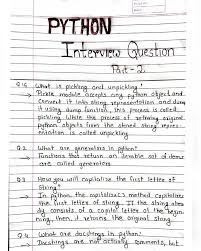 PYTHON
Interview Question
Part - 2
Q 1. What is pickling and unpickling?
Pickle module accepts any python object and
convert it into string representation and dump
it using dump function, this process is called
pickling. While the process of retrieving original
python objects from the stored string repres-
entation is called unpickling
Q 2 What are generators in python?
Functions that return an iterable set of items
are called generators
Q 3 How you will capitalize the first letter of
string?
In python, the capitalize() method capitalize
the first letter of string. If the string alrea-
dy consists of a capital letter at the begin-
ning, then, it returns the original string
Q 4 What are docstrings in python?
Docstrings are not actually comments, but